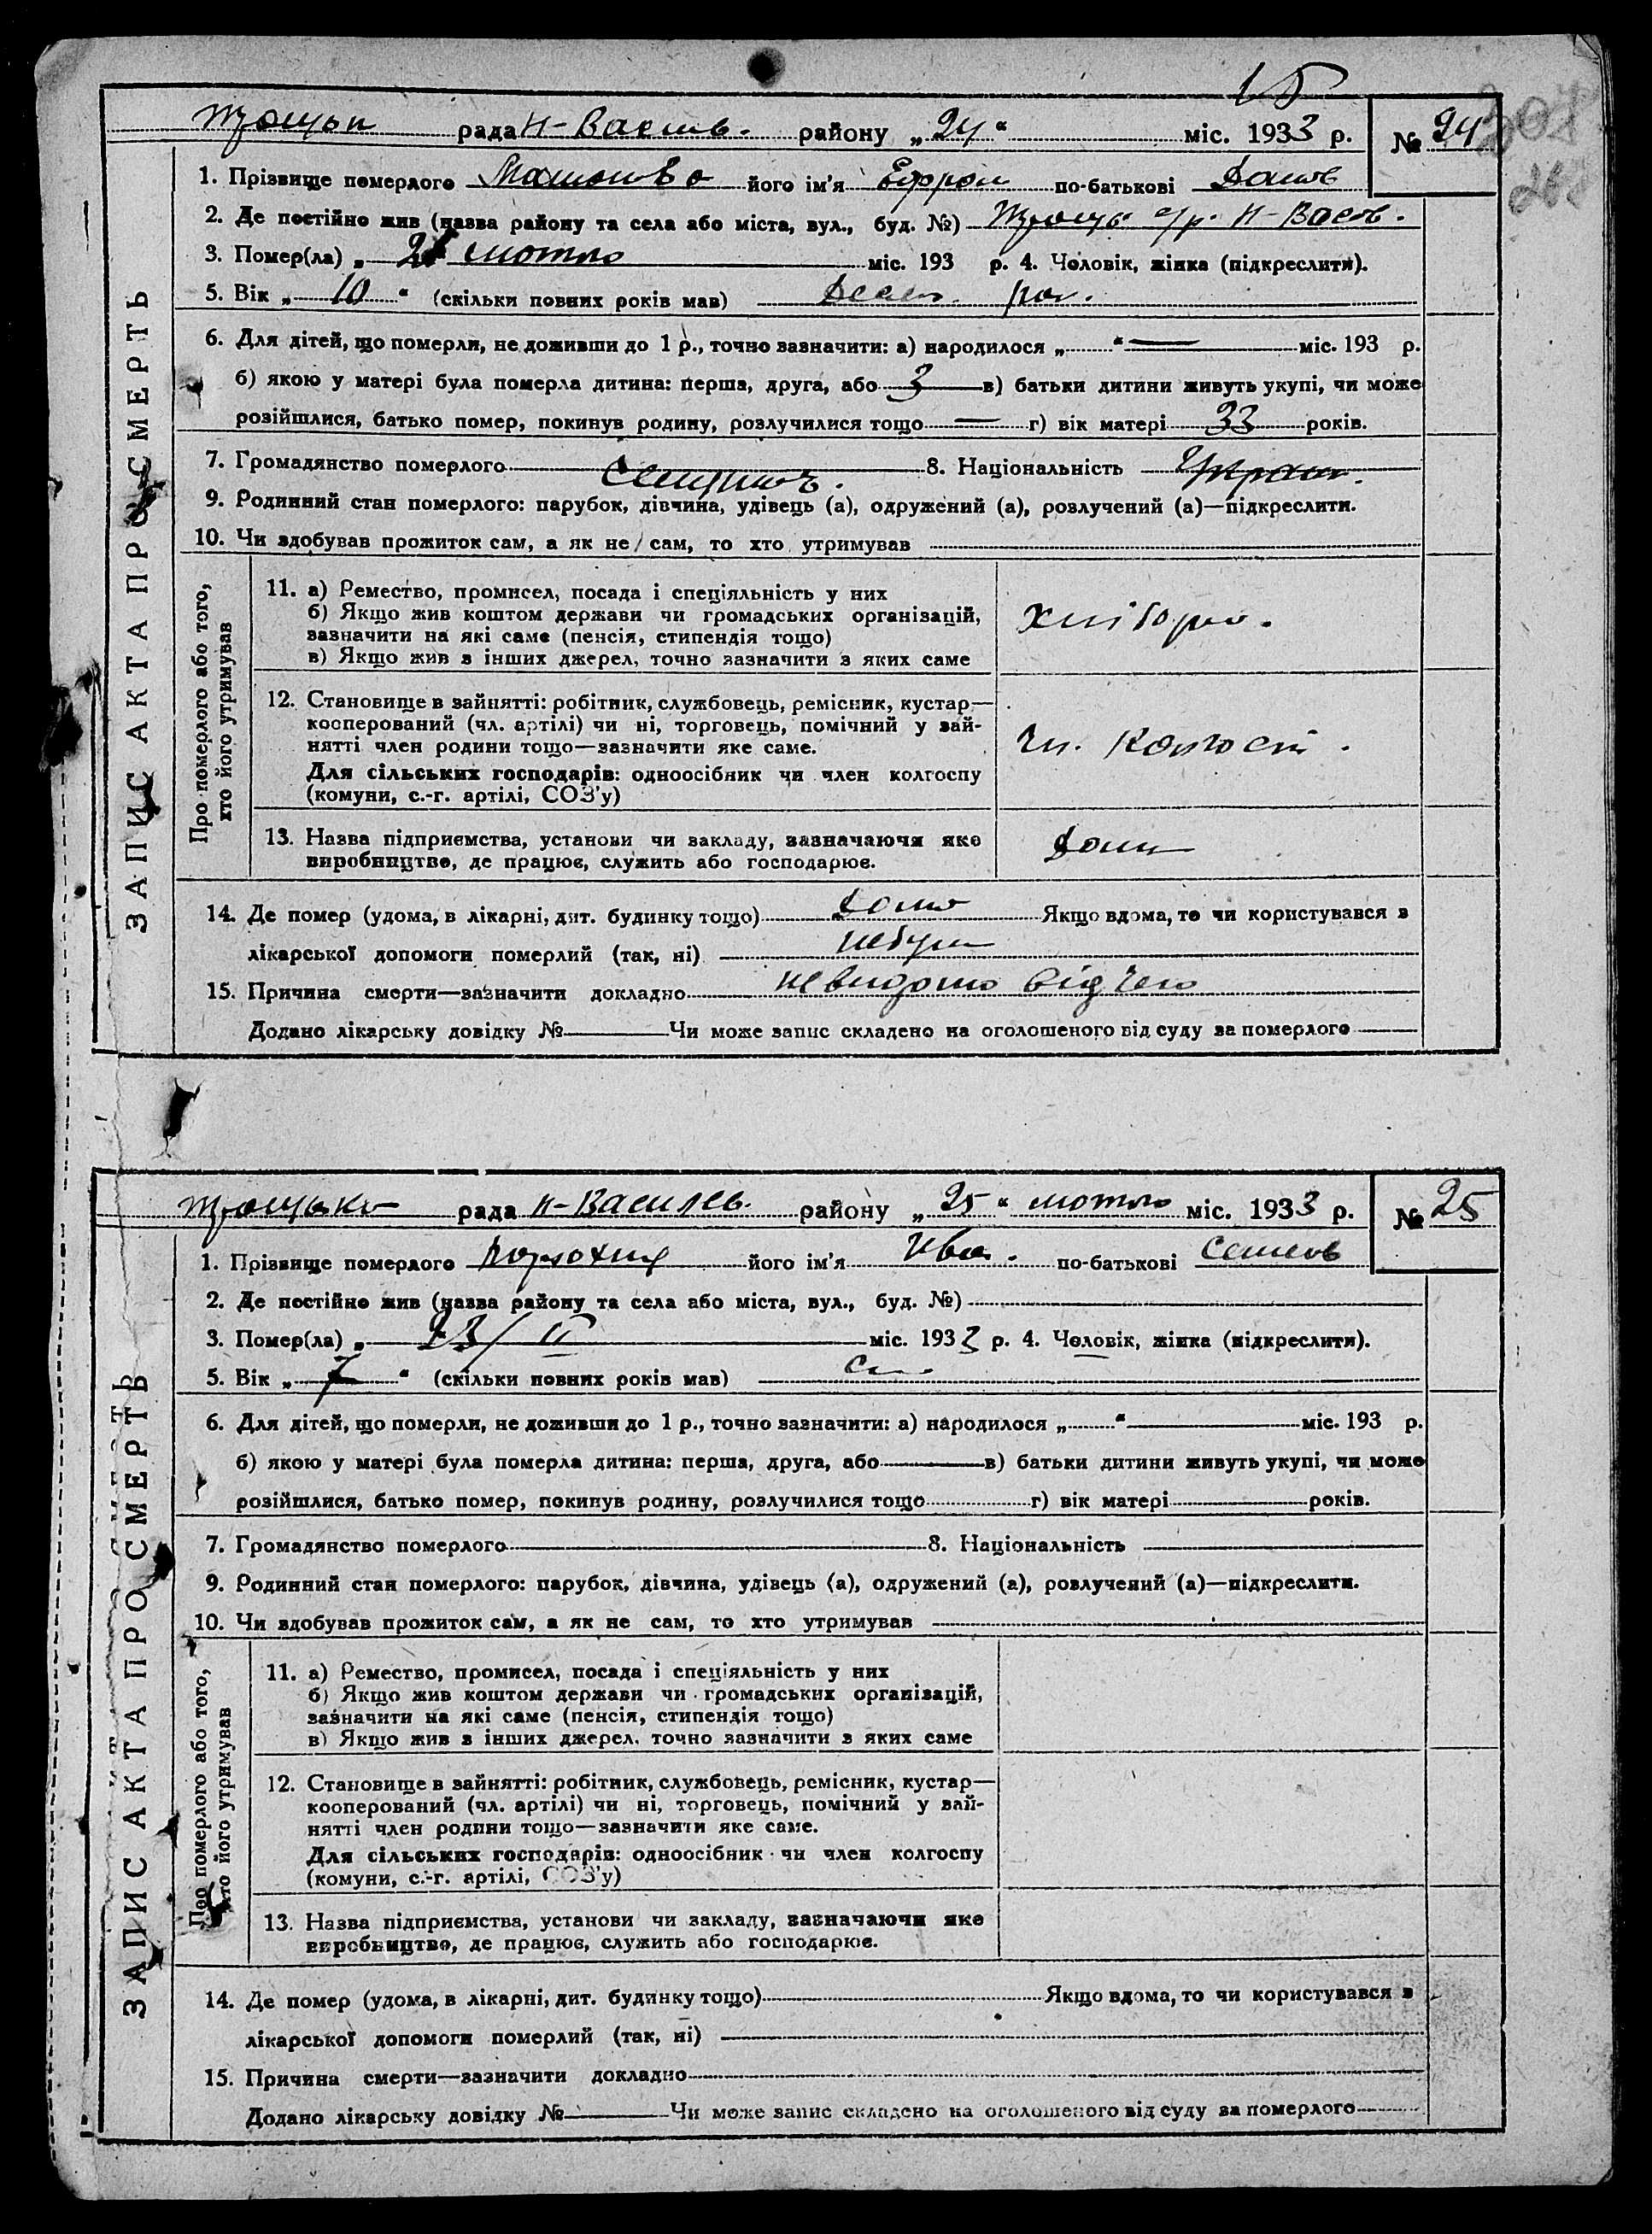 15
рада Н-Васив. району „24“ міс. 1933 р. № 24
1. Прізвище померлого його ім'я по-батькові
2. Де постійно жив (назва району та села або міста, вул., буд. №) с/р. Н-Васов.
3. Помер(ла) „ лютого міс. 193 р. 4. Чоловік, жінка (підкреслити).
5. Вік „10“ (скільки повних років мав) рок.
6. Для дітей, що померли, не доживши до 1 р., точно зазначити: а) народилося „ “ — міс. 193 р.
б) якою у матері була померла дитина: перша, друга, або 3 в) батьки дитини живуть укупі, чи може
розійшлися, батько помер, покинув родину, розлучилися тощо — г) вік матері 33 років.
7. Громадянство померлого 8. Національність Україн.
9. Родинний стан померлого: парубок, дівчина, удівець (а), одружений (а), розлучений (а)—підкреслити.
10. Чи здобував прожиток сам, а як не сам, то хто утримував
ЗАПИС АКТА ПРО СМЕРТЬ
Про померлого або того,
хто його утримував
11. а) Ремество, промисел, посада і спеціяльність у них
б) Якщо жив коштом держави чи громадських організацій,
зазначити на які саме (пенсія, стипендія тощо)
в) Якщо жив з інших джерел, точно зазначити з яких саме
Хлібороб.
12. Становище в зайнятті: робітник, службовець, ремісник, кустар—
кооперований (чл. артілі) чи ні, торговець, помічний у зай-
нятті член родини тощо—зазначити яке саме.
Для сільських господарів: одноосібник чи член колгоспу
(комуни, с.-г. артілі, СОЗ'у)
Чл. колгосп.
13. Назва підприємства, установи чи закладу, зазначаючи яке
виробництво, де працює, служить або господарює.
14. Де помер (удома, в лікарні, дит. будинку тощо) дома Якщо вдома, то чи користувався з
лікарської допомоги померлий (так, ні)
15. Причина смерти—зазначити докладно невидомо від чего
Додано лікарську довідку № Чи може запис складено на оголошеного від суду за померлого
рада Н-Василів. району „25“ лютого міс. 1933 р. № 25
1. Прізвище померлого його ім'я Іва. по-батькові Семенов
2. Де постійно жив (назва району та села або міста, вул., буд. №)
3. Помер(ла) „23/II міс. 1933 р. 4. Чоловік, жінка (підкреслити).
5. Вік „7“ (скільки повних років мав)
6. Для дітей, що померли, не доживши до 1 р., точно зазначити: а) народилося „ “ міс. 193 р.
б) якою у матері була померла дитина: перша, друга, або в) батьки дитини живуть укупі, чи може
розійшлися, батько помер, покинув родину, розлучилися тощо г) вік матері років.
7. Громадянство померлого 8. Національність
9. Родинний стан померлого: парубок, дівчина, удівець (а), одружений (а), розлучений (а)—підкреслити.
10. Чи здобував прожиток сам, а як не сам, то хто утримував
ЗАПИС АКТА ПРО СМЕРТЬ
Про померлого або того,
хто його утримував
11. а) Ремество, промисел, посада і спеціяльність у них
б) Якщо жив коштом держави чи громадських організацій,
зазначити на які саме (пенсія, стипендія тощо)
в) Якщо жив з інших джерел, точно зазначити з яких саме
12. Становище в зайнятті: робітник, службовець, ремісник, кустар—
кооперований (чл. артілі) чи ні, торговець, помічний у зай-
нятті член родини тощо—зазначити яке саме.
Для сільських господарів: одноосібник чи член колгоспу
(комуни, с.-г. артілі, СОЗ'у)
13. Назва підприємства, установи чи закладу, зазначаючи яке
виробництво, де працює, служить або господарює.
14. Де помер (удома, в лікарні, дит. будинку тощо) Якщо вдома, то чи користувався з
лікарської допомоги померлий (так, ні)
15. Причина смерти—зазначити докладно
Додано лікарську довідку № Чи може запис складено на оголошеного від суду за померлого